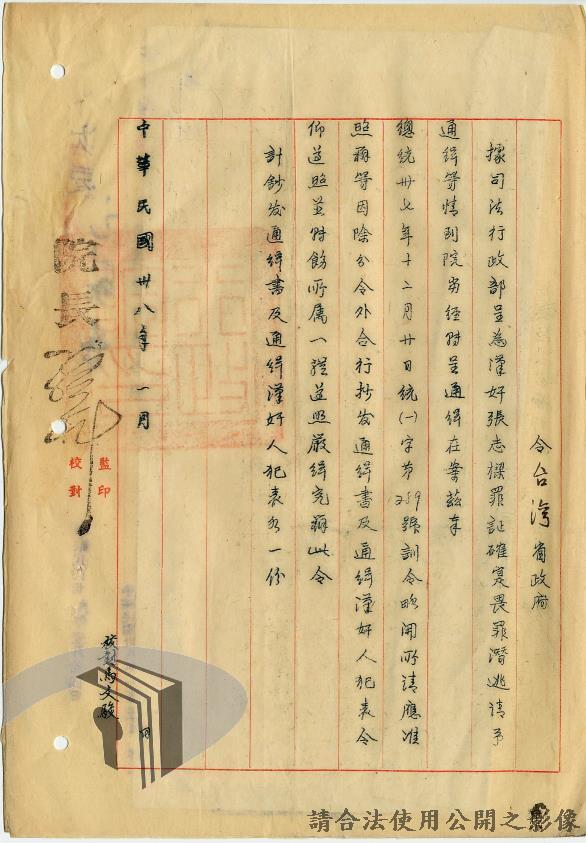 令台灣省政府
據司法行政部呈為漢奸張志樑罪証確寔畏罪潛逃請予
通緝等情到院當經時呈通緝在案茲奉
總統卅七年十二月廿日統㈠字第759號訓令略開所請應准
照辦等因除分令外合行抄发通緝書及通緝漢奸人犯表令
仰遵照並財飭所属一體遵照严緝究辦此令
計鈔发通緝書及通緝漢奸人犯表各一份
中華民國卅八年一月
院長
監印
校對
校對馬文駿
請合法使用公開之影像